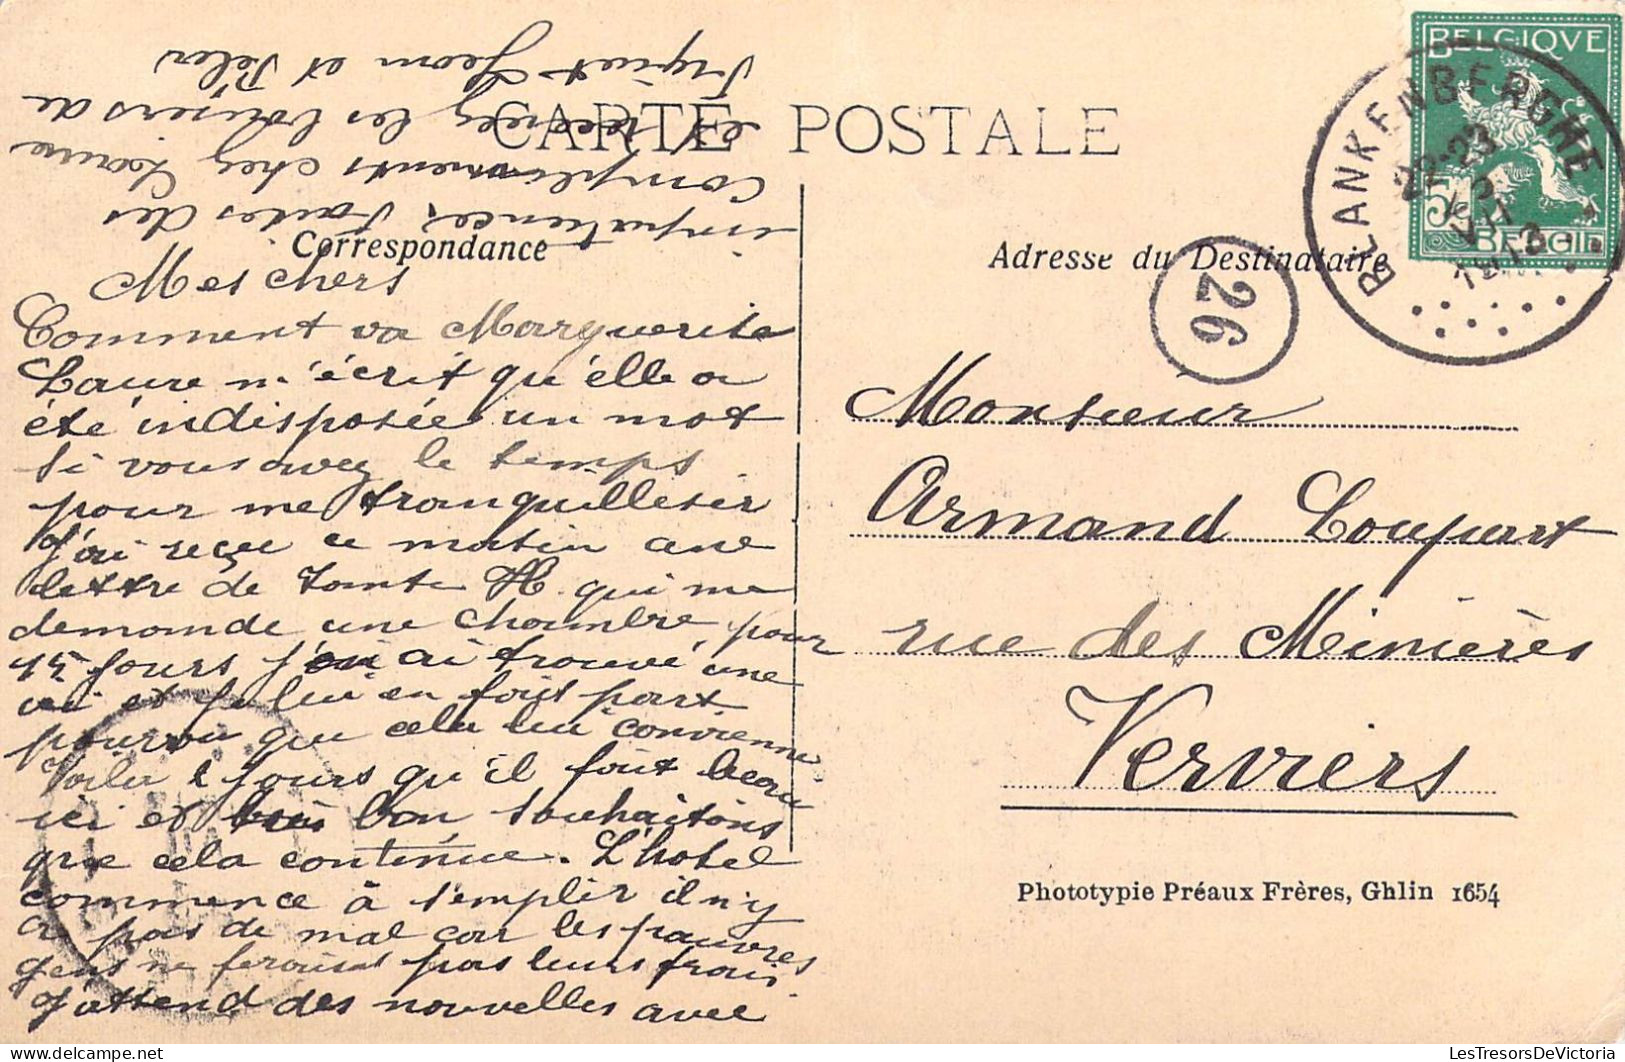 CARTE POSTALE
Correspondance
Mes chers
Comment va Marguerite
Laure m'écrit qu'élle a
été indisposée un mot
si vous avez le temps
pour me tranquilleser
J'ai reçu ce matin une
lettre de tante H. qui me
demande une chambre pour
15 jours j'en ai trouvé une
ici et je lui en fais part
pourvu que cela lui convienne
Voila 2 jours qu'il fait beau
ici et très bon, souhaitons
que cela continue. L'hotel
commence à s'emplir il n'y
a pas de mal car les pauvres
gens ne feraient pas leurs frais
J'attend des nouvelles avec
impatience, Faites des
compliments chez Laure
et recevez les baisers de
Jean et
Adresse du Destinataire
Monsieur
Armand Loupart
rue des Minières
Verviers
Phototypie Préaux Frères, Ghlin 1654
BELGIQVE
5
BELGIE
BLANKENBERGHE
22-23
VII
1913
26
LesTresorsDeVictoria.com